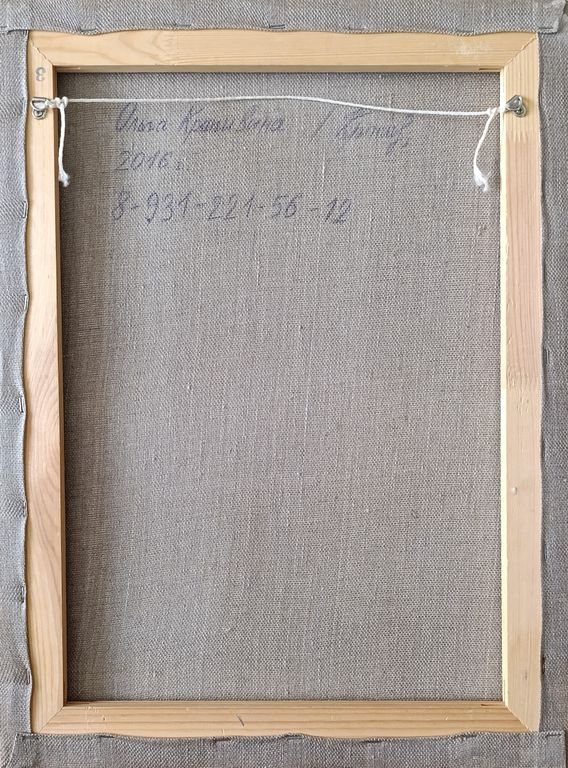 8
Ольга Крапивина /
2016 г.
8-931-221-56-12